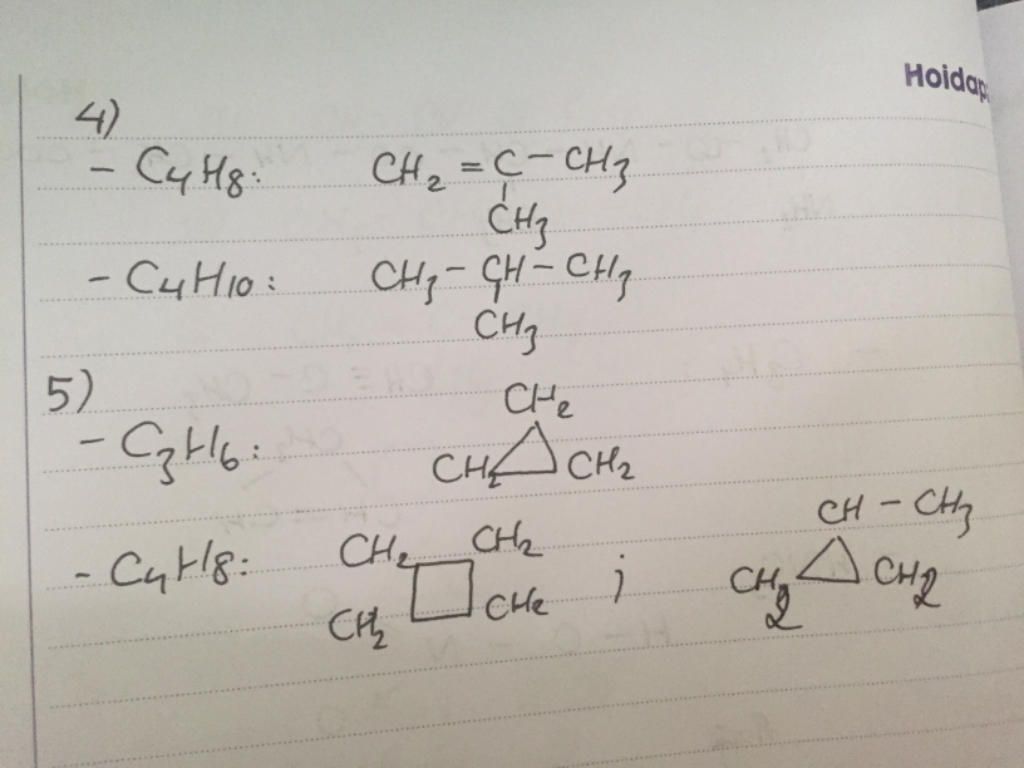 Hoidap
4)
- C4H8: CH2 = C - CH3
CH3
- C4H10: CH3 - CH - CH3
CH3
5)
CH2
- C3H6: CH2 CH2
CH - CH3
- C4H8: CH2 CH2 ; CH2 CH2
CH2 CH2